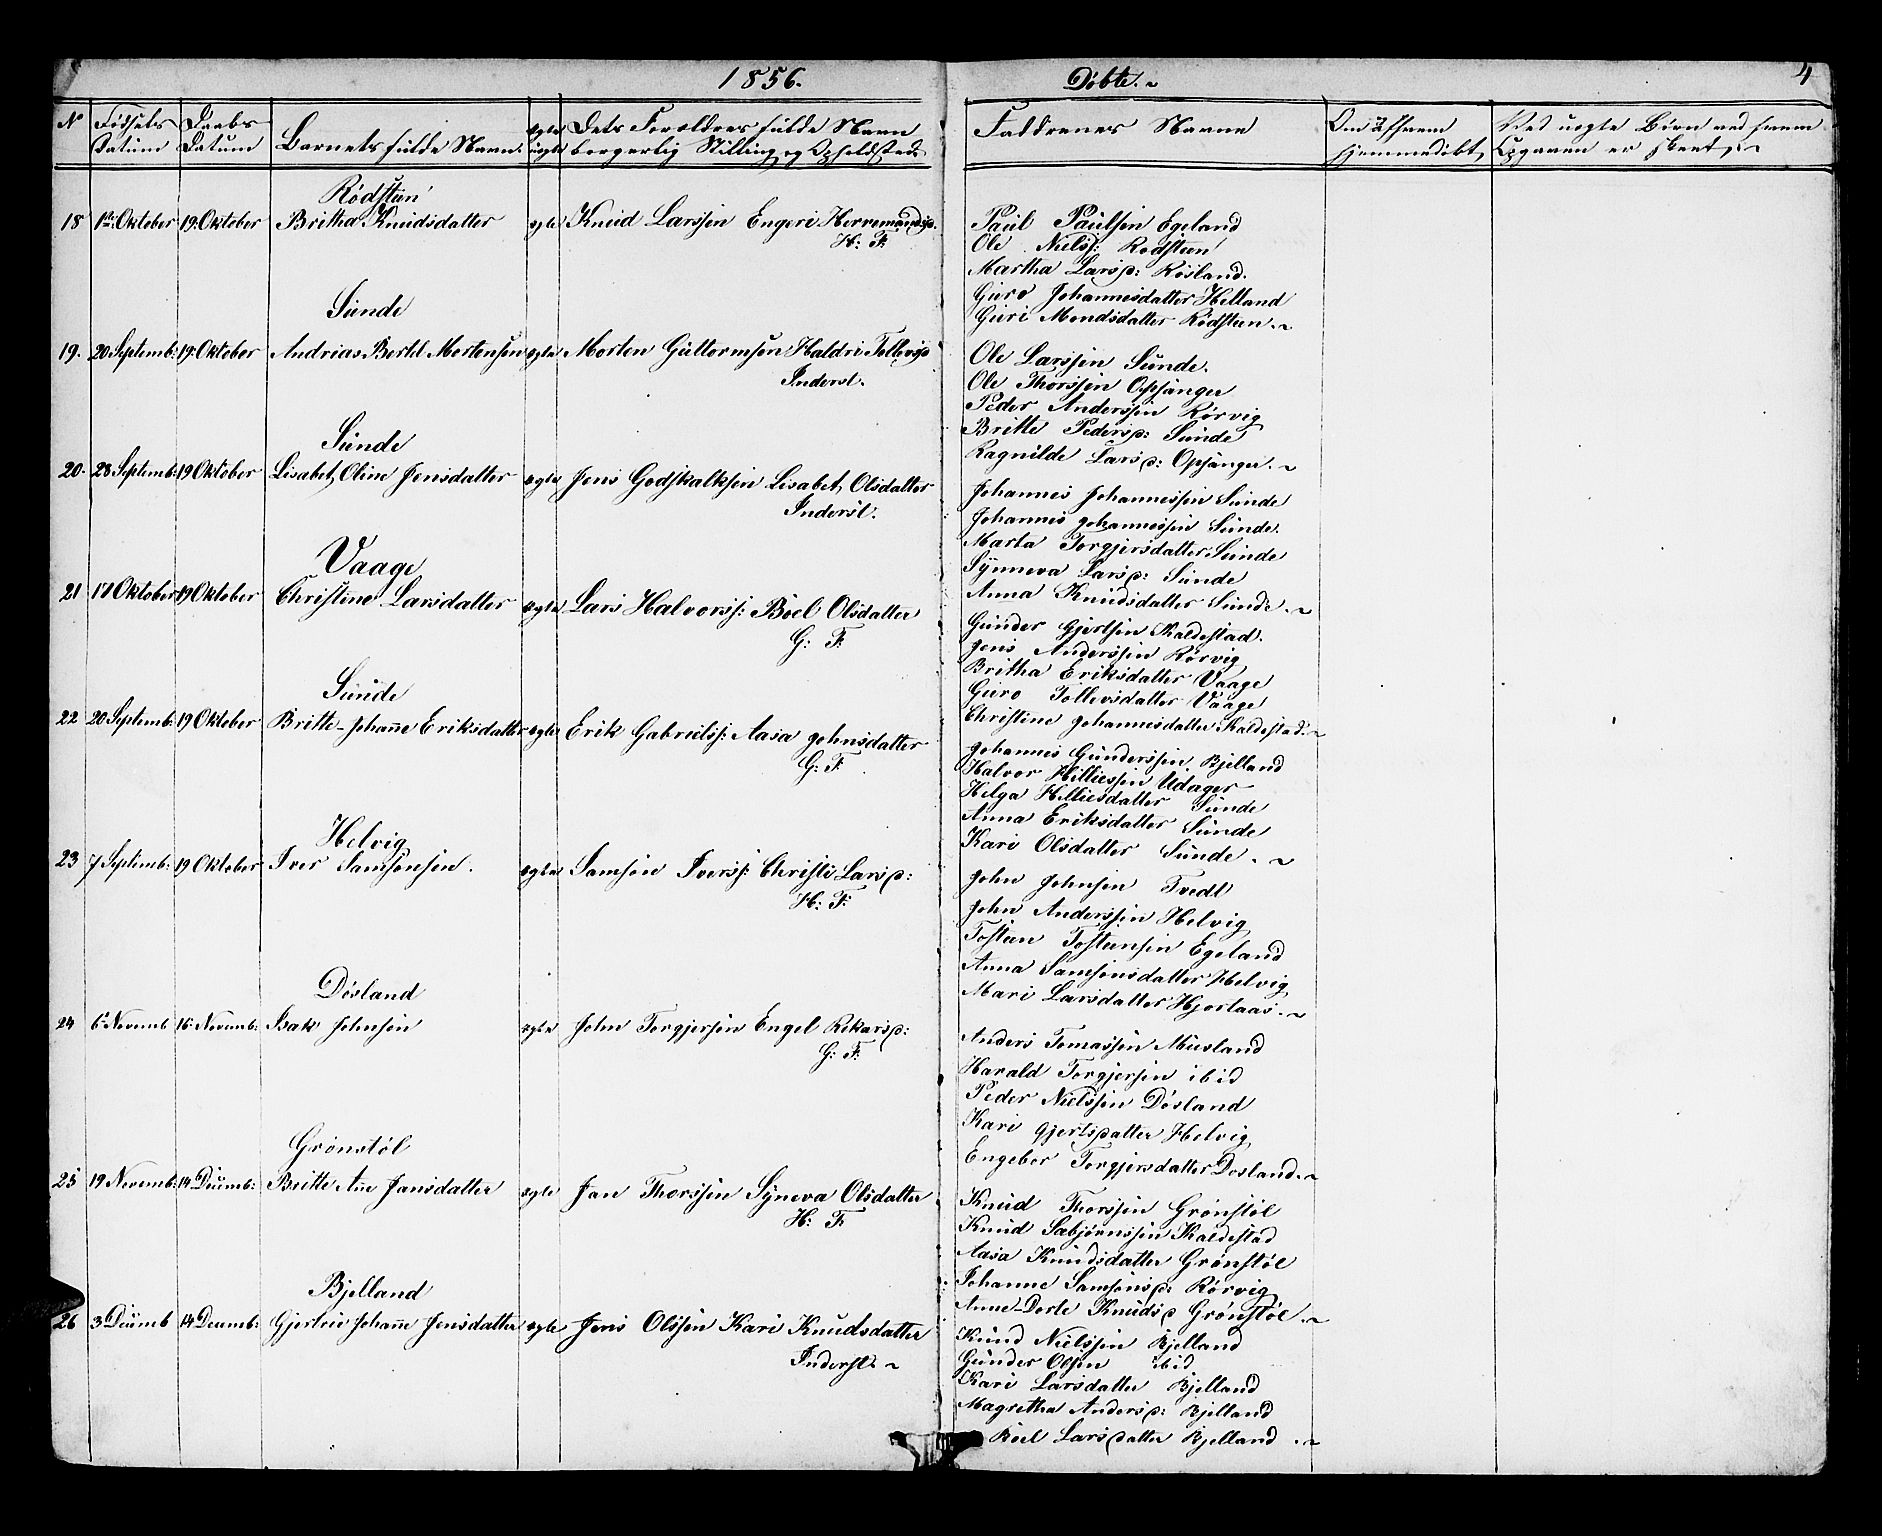 1856.
Døbte. ~
4
N
Fødsels Datum
Daabs Datum
Barnets fulde Navn.
ægte uægte
Dets Forældres fulde Navn borgerlig Stilling og Opholdsted.
Faddrenes Navne
Om
hjemmedøbt,
Ved uegte Børn
er skeet, ~
Rødsteen
18 1ste Oktober 19 Oktober Britha Knudsdatter egte Knud Larssen Engeri
H: F:
Paul Paulsen Egeland
Ole Nielss: Rødsteen
Martha Larsd: Røsland.
Guro Johannesdatter Helland
Guri Mondsdatter Rødsteen. ~
Sunde
19. 20 Septemb: 19 Oktober Andrias Bertel Mortensen egte Morten Guttormsen Haldri
Inderst.
Ole Larssen Sunde.
Ole Thorssen Opsanger
Peder Anderssen Rørvig
Britte Pedersd: Sunde
Ragnilde Larsd: Opsanger. ~
Sunde
20. 28 Septemb: 19 Oktober Lisabet, Oline Jensdatter egte Jens Godskalksen Lisabet, Olsdatter
Inderst.
Johannes Johannessen Sunde
Johannes Johannessen Sunde.
Marta Torgjersdatter Sunde
Synneva Larsd: Sunde
Anna Knudsdatter Sunde. ~
Vaage
21 17 Oktober 19 Oktober Christine Larsdatter egte Lars Halvorss: Boel Olsdatter
G: F:
Gunder Gjertsen Skaldestad.
Jens Anderssen Rørvig
Britha Eriksdatter Vaage
Guro Tollevsdatter Vaage
Christine Johannesdatter Skaldestad. ~
Sunde
22 20 Septemb: 19 Oktober Britte-Johane Eriksdatter egte Erik Gabrielss: Aasa Johnsdatter
G: F.
Johannes Gunderssen. Bjelland
Halvor Helliessen Udager
Helga Helliesdatter Sunde
Anna Eriksdatter Sunde
Kari Olsdatter Sunde. ~
Helvig
23 7 Septemb: 19 Oktober Iver Samsonsen. egte Samson Iverss: Christi Larsd:
H: F:
John Johnsen Tvedt
John Anderssen Helvig
Tosten Tostensen Egeland
Anna Samsonsdatter Helvig
Mari Larsdatter Hjortaas. ~
Døsland
24 6te Novemb 16 Novemb: Isak Johnsøn egte John Torgjersøn Engel Rikarsd:
G: F:
Anders Tomassøn Musland
Harald Torgjersen ibid
Peder Nielssøn Døsland
Kari Gjertsdatter Helvig
Engebor Torgjersdatter Dosland. ~
Grønstøl
25 19 Novemb: 14 Deiemb: Britte Ane Jansdatter egte Jan Thorssen Syneva Olsdatter
H: F:
Knud Thorssen Grønstøl
Knud Sæbjørnssen Skaldestad
Aasa Knudsdatter Grønstøl
Johanne Samsonsd: Rørvig
Anne-Dorte Knudsd Grønstøl. ~
Bjelland
26 3 Deiemb 14 Deiemb: Gjertrue Johane Jensdatter egte Jens Olssen Kari Knudsdatter
Inderst. ~
Knud Nielssen Bjelland
Gunder Olsen ibid
Kari Larsdatter Bjelland
Magretha Andersd: Bjelland
Boel Larsdatter Bjelland. ~